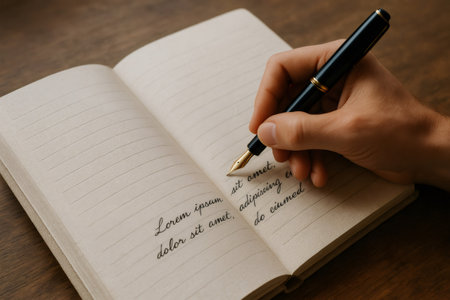 Lorem ipsum sit amet,
dolor sit amet, adipiscing
do eiumed